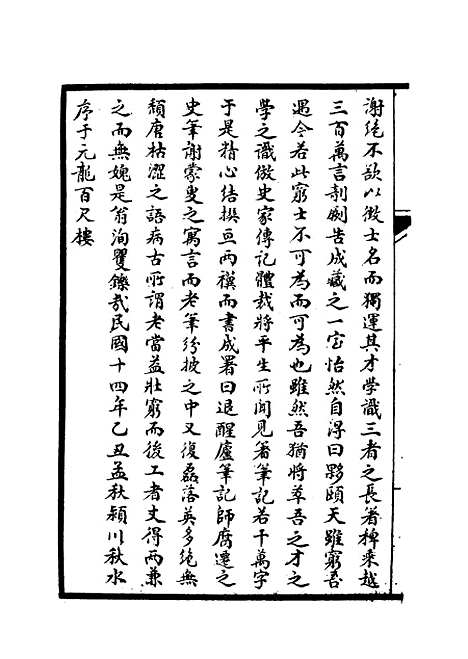 謝絕不欲以徵士名而獨運其才學識三者之長著稗乘越
三百萬言剞劂告成藏之一室怡然自得曰夥頤天雖窮吾
遇今若此窮士不可為而可為也雖然吾猶將萃吾之才之
學之識倣史家傳記體裁將平生所聞見著筆記若干萬字
于是精心結撰亘兩禩而書成署曰退醒廬筆記師腐遷之
史筆謝蒙叟之寓言而老筆紛披之中又復磊落英多絕無
頹唐枯澀之語病古所謂老當益壯窮而後工者丈得兩兼
之而無媿是翁洵矍鑠哉民國十四年乙丑孟秋潁川秋水
序于元龍百尺樓